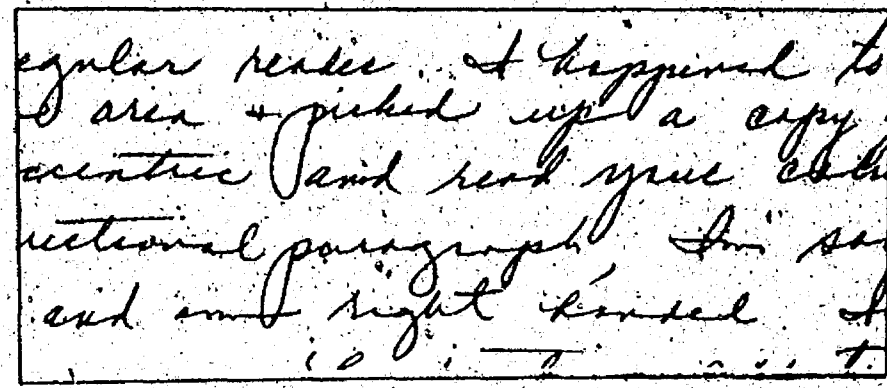 egular reader. I happened to
e area + picked up a copy
ccentric and read your colu
uctional paragraph. I'm
and am right handed. I